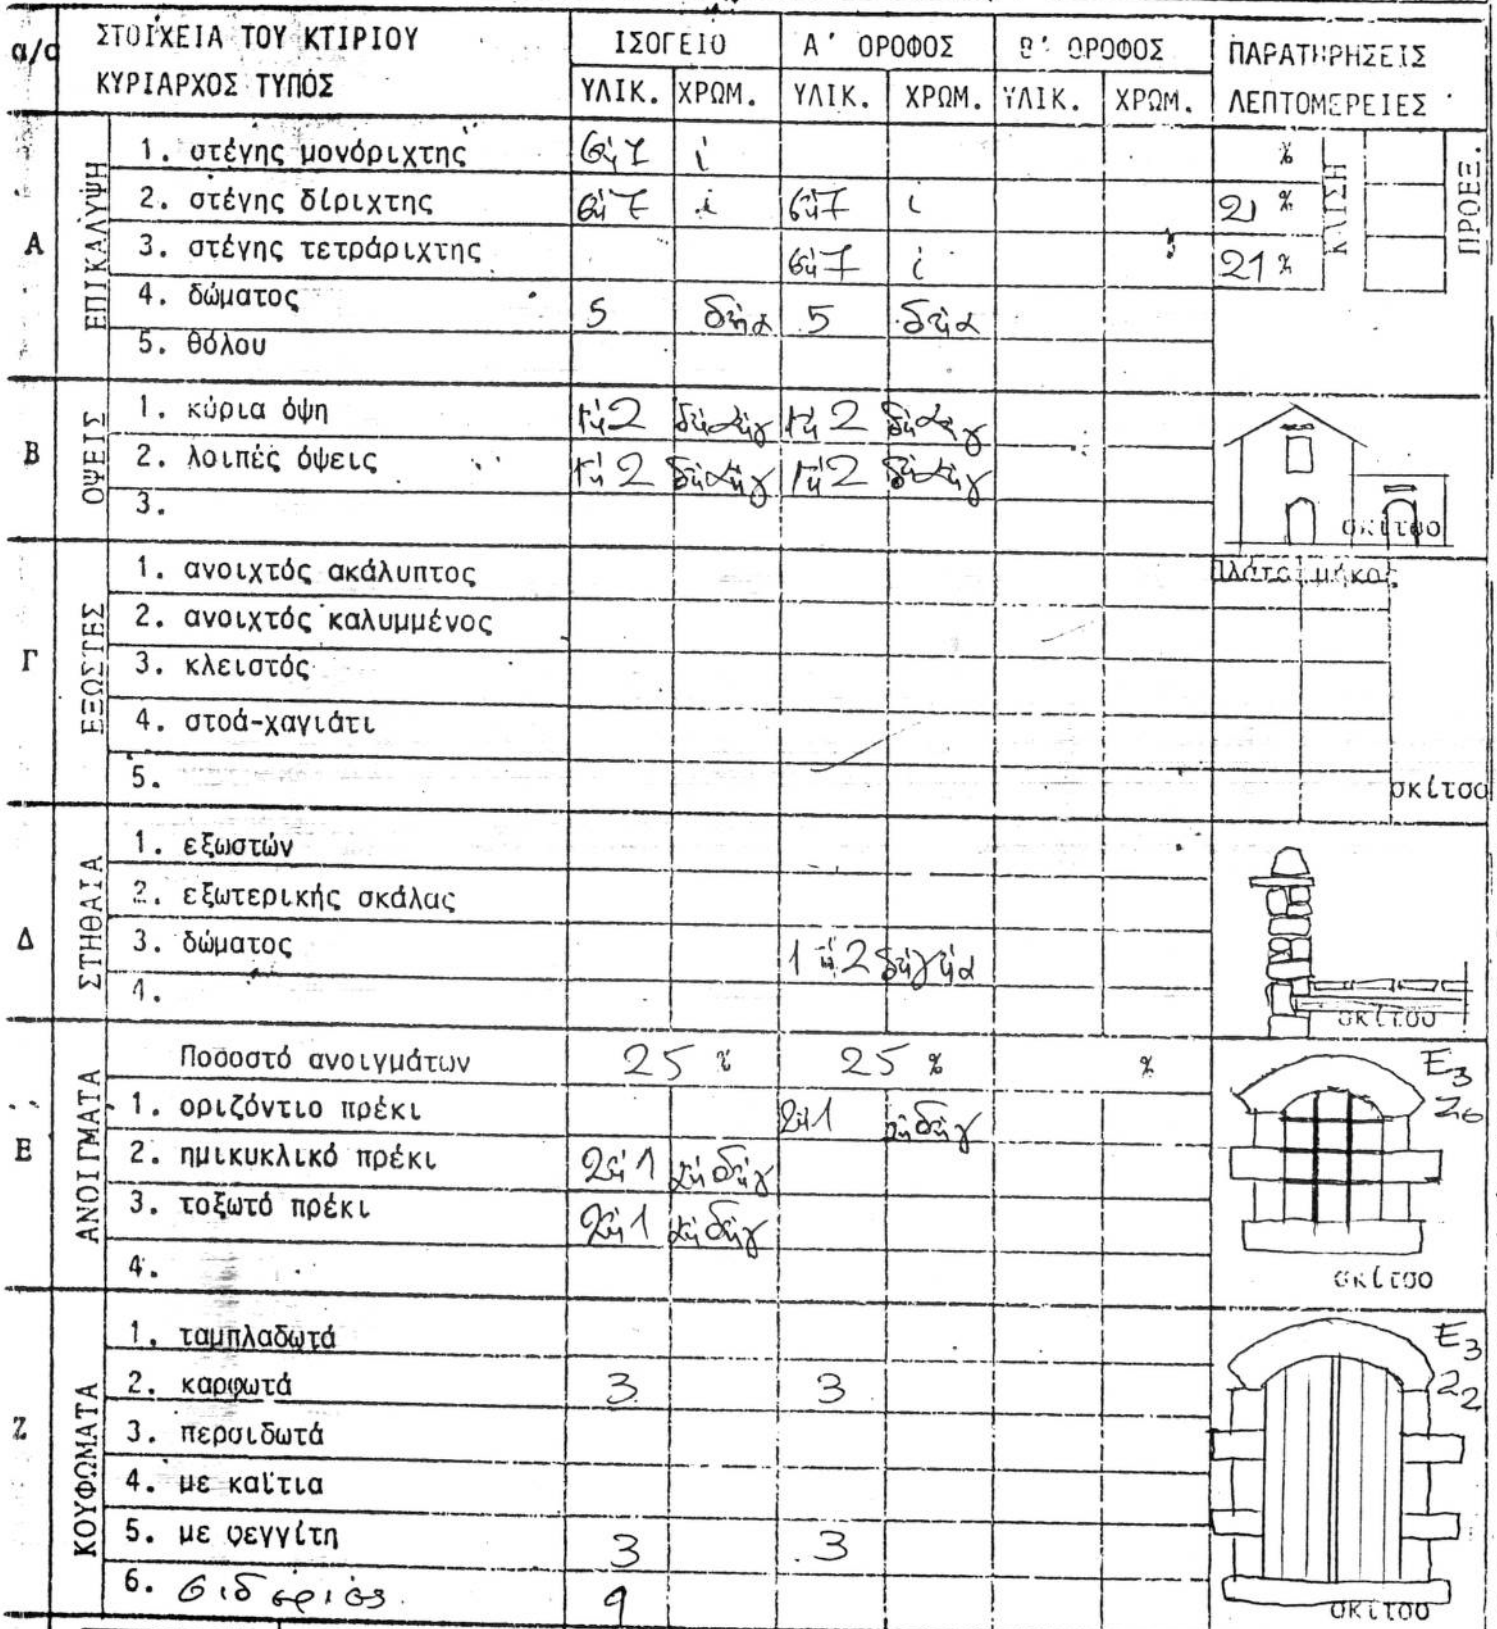 α/α ΣΤΟΙΧΕΙΑ ΤΟΥ ΚΤΙΡΙΟΥ ΙΣΟΓΕΙΟ Α' ΟΡΟΦΟΣ Β' ΟΡΟΦΟΣ ΠΑΡΑΤΗΡΗΣΕΙΣ
ΚΥΡΙΑΡΧΟΣ ΤΥΠΟΣ ΥΛΙΚ. ΧΡΩΜ. ΥΛΙΚ. ΧΡΩΜ. ΥΛΙΚ. ΧΡΩΜ. ΛΕΠΤΟΜΕΡΕΙΕΣ
Α ΕΠΙΚΑΛΥΨΗ ΚΛΙΣΗ ΠΡΟΕΞ.
1. στέγης μονόριχτης 6ή7 ί %
2. στέγης δίριχτης 6ή7 ί 6ή7 ί 21 %
3. στέγης τετράριχτης 6ή7 ί 21 %
4. δώματος 5 δήα 5 δήα
5. θόλου
Β ΟΨΕΙΣ
1. κύρια όψη 1ή2 δήαήγ 1ή2 δήαήγ
2. λοιπές όψεις 1ή2 δήαήγ 1ή2 δήαήγ
3.
σκίτσο
Γ ΕΞΩΣΤΕΣ
1. ανοιχτός ακάλυπτος πλάτος μήκος
2. ανοιχτός καλυμμένος
3. κλειστός
4. στοά-χαγιάτι
5.
σκίτσο
Δ ΣΤΗΘΑΙΑ
1. εξωστών
2. εξωτερικής σκάλας
3. δώματος 1ή2 δήγήα
4.
σκίτσο
Ε ΑΝΟΙΓΜΑΤΑ
Ποσοστό ανοιγμάτων 25 % 25 % %
1. οριζόντιο πρέκι 2ή1 αήδήγ
2. ημικυκλικό πρέκι 2ή1 αήδήγ
3. τοξωτό πρέκι 2ή1 αήδήγ
4.
Ε3
26
σκίτσο
Ζ ΚΟΥΦΩΜΑΤΑ
1. ταμπλαδωτά
2. καρφωτά 3 3
3. περσιδωτά
4. με καΐτια
5. με φεγγίτη 3 3
6. σιδεριές 9
Ε3
22
σκίτσο